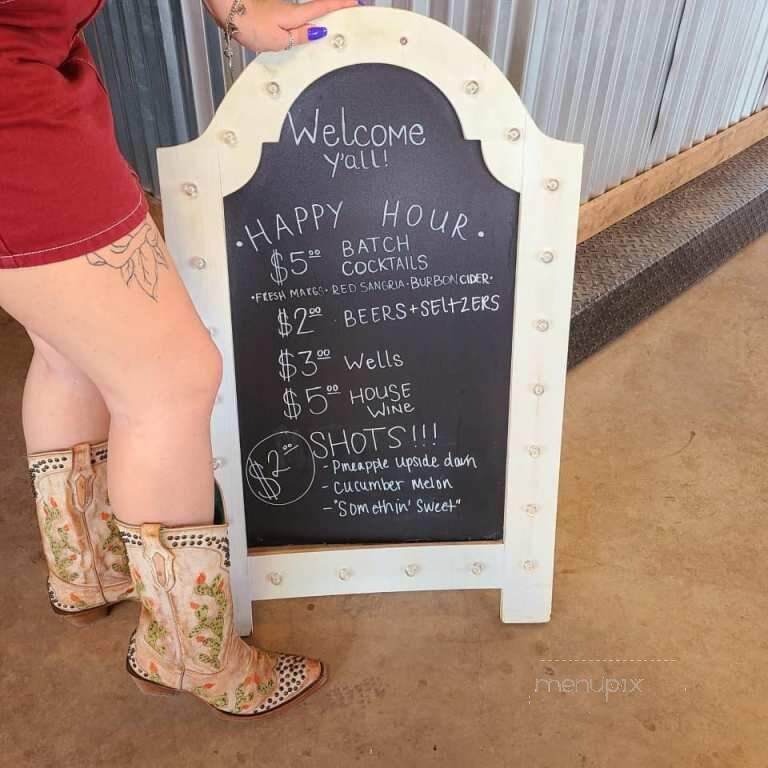 Welcome
y'all!
• HAPPY HOUR •
$5.00 BATCH
COCKTAILS
• FRESH MARGS • RED SANGRIA • BURBON CIDER •
$2.00 BEERS + SELTZERS
$3.00 Wells
$5.00 HOUSE
WINE
$2.00 SHOTS!!!
- Pineapple upside down
- Cucumber Melon
- "Somethin' Sweet"
menupix